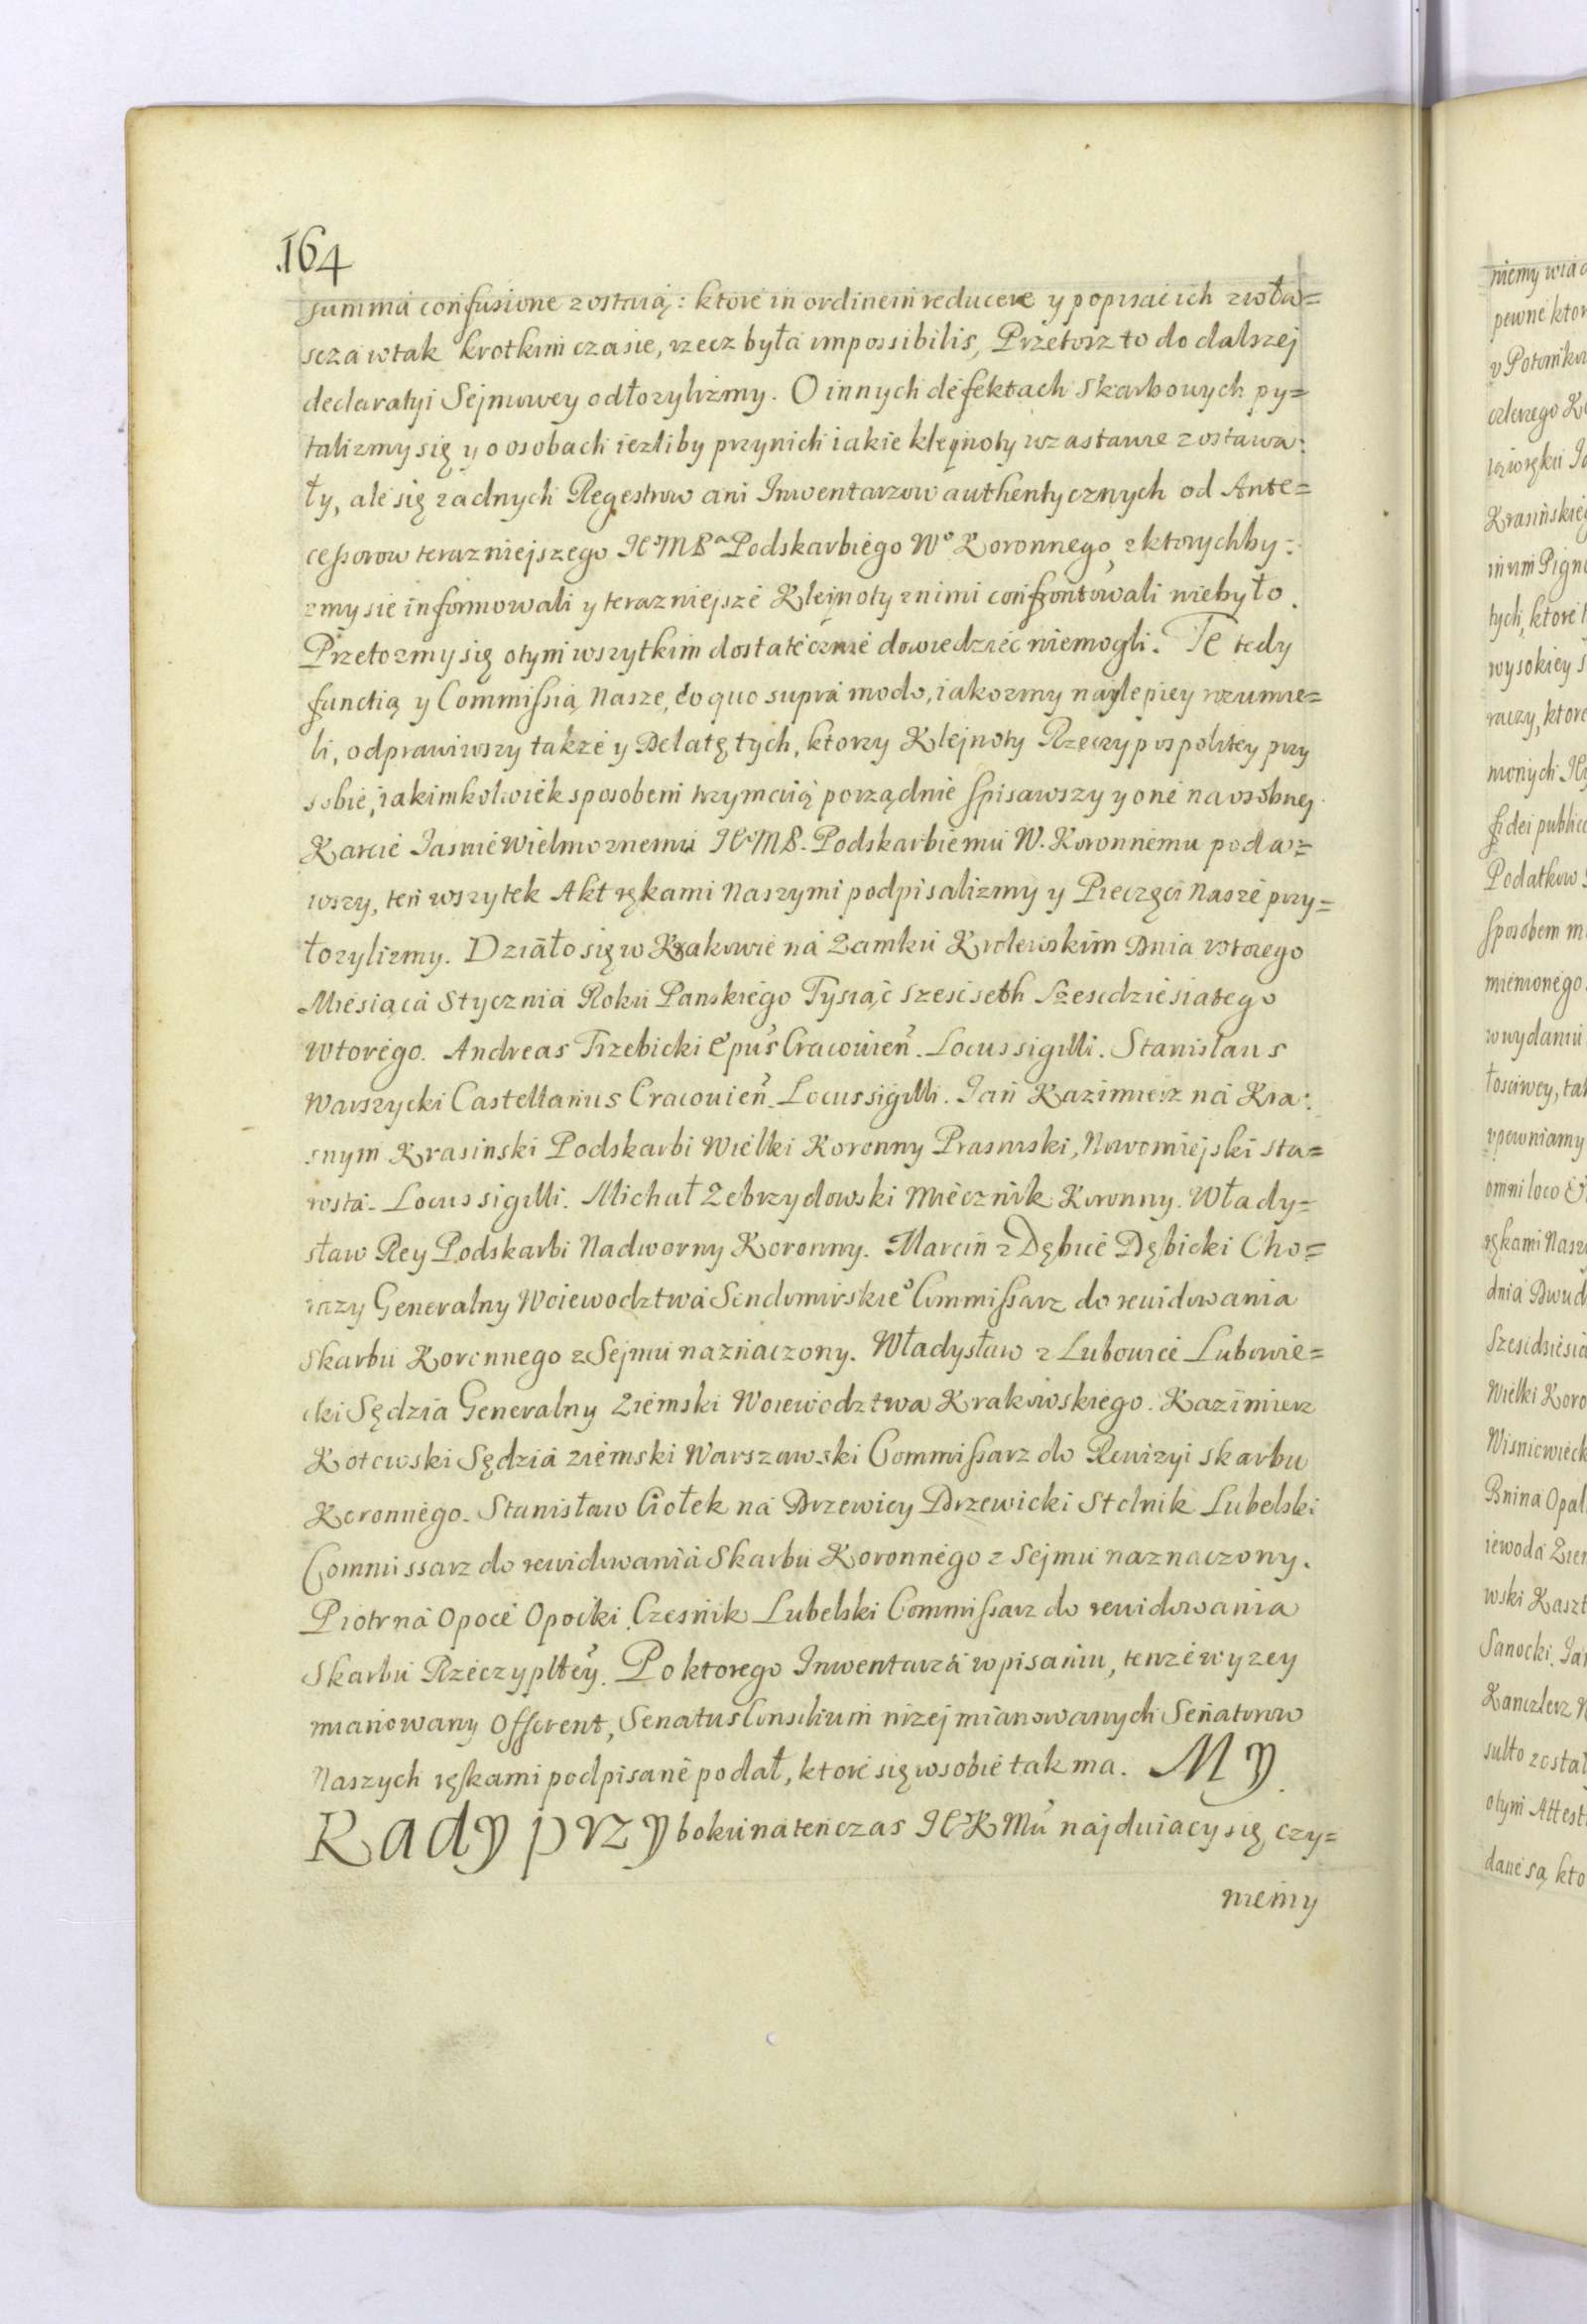 164
summa confusione zostaią: ktore in ordinem reducere y popisac ich zwła=
scza wtak krotkim czasie, rzecz była impossibilis, Przetosz to do dalszej
declaratyi Sejmowey odłozylizmy. O innych defektach skarbowych py=
talizmy się y o osobach iezliby przynich iakie kleynoty wzastawie zostawa:
ły, ale się zadnych Regestrow ani Inwentarzow authentycznych od Ante=
cessorow terazniejszego IEMP Podskarbiego Wo Koronnego, zktorychby:
zmy sie informowali y terazniejsze Klejnoty znimi confrontowali niebyło.
Przetozmy się otym wszytkim dostatecznie dowiedziec niemogli. Te tedy
functią y Commissią Nasze, eo quo supra modo, iakozmy naylepiey rozumie=
li, odprawiwszy takze y Delatę tych, ktorzy Klejnoty Rzeczypospolitey przy
sobie, iakimkolwiek sposobem trzymaią porządnie spisawszy y one na osobney
Karcie Iasnie Wielmoznemu IEMP. Podskarbiemu W. Koronnemu podaw=
wszy, ten wszytek Akt rękami Naszymi podpisalizmy y Pieczęci Nasze przy=
łozylizmy. Działo się w Krakowie na Zamku Krolewskim Dnia wtorego
Miesiąca Stycznia Roku Panskiego Tysiąc szescseth Szescdziesiatego
Wtorego. Andreas Trzebicki Epus Cracouien. Locus sigilli. Stanislaus
Warszycki Castellanus Cracouien. Locus sigilli. Ian Kazimierz na Kra:
snym Krasinski Podskarbi Wielki Koronny Prasnski, Nowomiejski sta=
rosta. Locus sigilli. Michał Zebrzydowski Miecznik Koronny. Włady=
sław Rey Podskarbi Nadworny Koronny. Marcin z Dębice Dębicki Cho=
razy Generalny Woiewodztwa Sendomirskieo Commissarz do rewidowania
Skarbu Koronnego z Sejmu naznaczony. Władysław z Lubowice Lubowie=
cki Sędzia Generalny Ziemski Woiewodztwa Krakowskiego. Kazimierz
Kotowski Sędzia ziemski Warszawski Commissarz do Rewizyi skarbu
Koronnego. Stanisław Ciołek na Drzewicy Drzewicki Stolnik Lubelski
Commissarz do rewidowania Skarbu Koronnego z Sejmu naznaczony.
Piotr na Opoce Opocki Czesnik Lubelski Commissarz do rewidowania
Skarbu Rzeczyplltey. Po ktorego Inwentarza wpisaniu, tenze wyzey
mianowany Offerent, Senatus Consilium nizej mianowanych Senatorow
Naszych rękami podpisane podał, ktore się wsobie tak ma. My
Rady przy boku na tenczas IEKMu najduiacy się, czy=
niemy